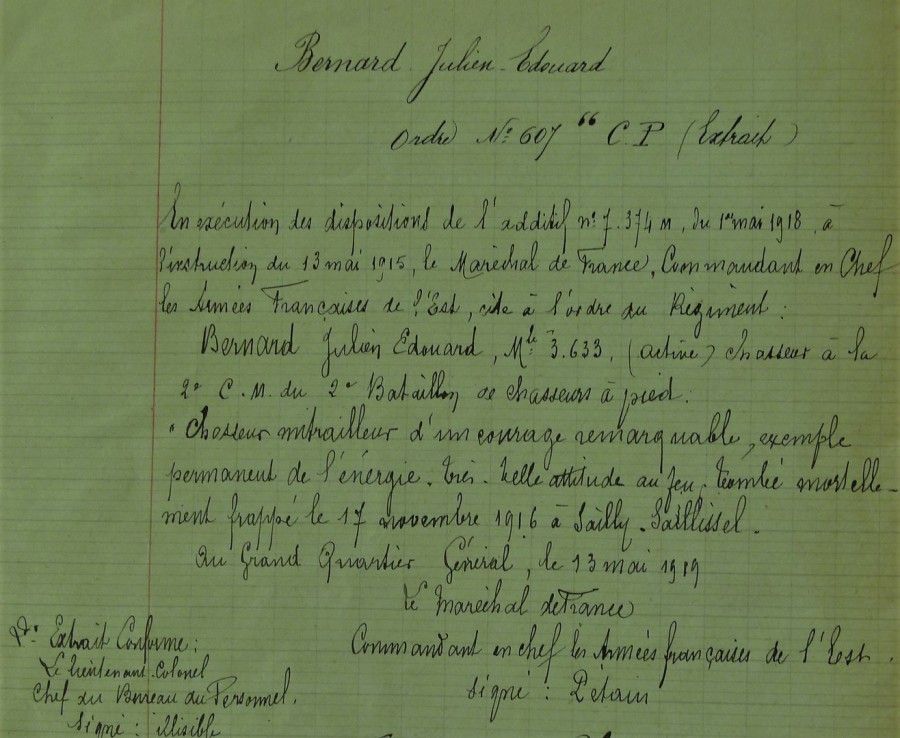 Bernard Julien Edouard
Ordre N° 607 " C P (Extrait)
En exécution des dispositions de l'additif n° 7.374 M, du 1er mai 1918, à
l'instruction du 13 mai 1915, le Maréchal de France, Commandant en Chef
les Armées Françaises de l'Est, cite à l'ordre du Régiment :
Bernard Julien Edouard, Mle 3.633, (active) chasseur à la
2e C.M. du 2e Bataillon de chasseurs à pied.
" Chasseur mitrailleur d'un courage remarquable, exemple
permanent de l'énergie. Très belle attitude au feu. Tombé mortelle-
ment frappé le 17 novembre 1916 à Sailly-Saillissel.
Au Grand Quartier Général, le 13 mai 1919
Le Maréchal de France
Commandant en chef les Armées françaises de l'Est.
signé : Pétain
Pr Extrait Conforme :
Le Lieutenant-Colonel
Chef du Bureau du Personnel.
Signé : illisible